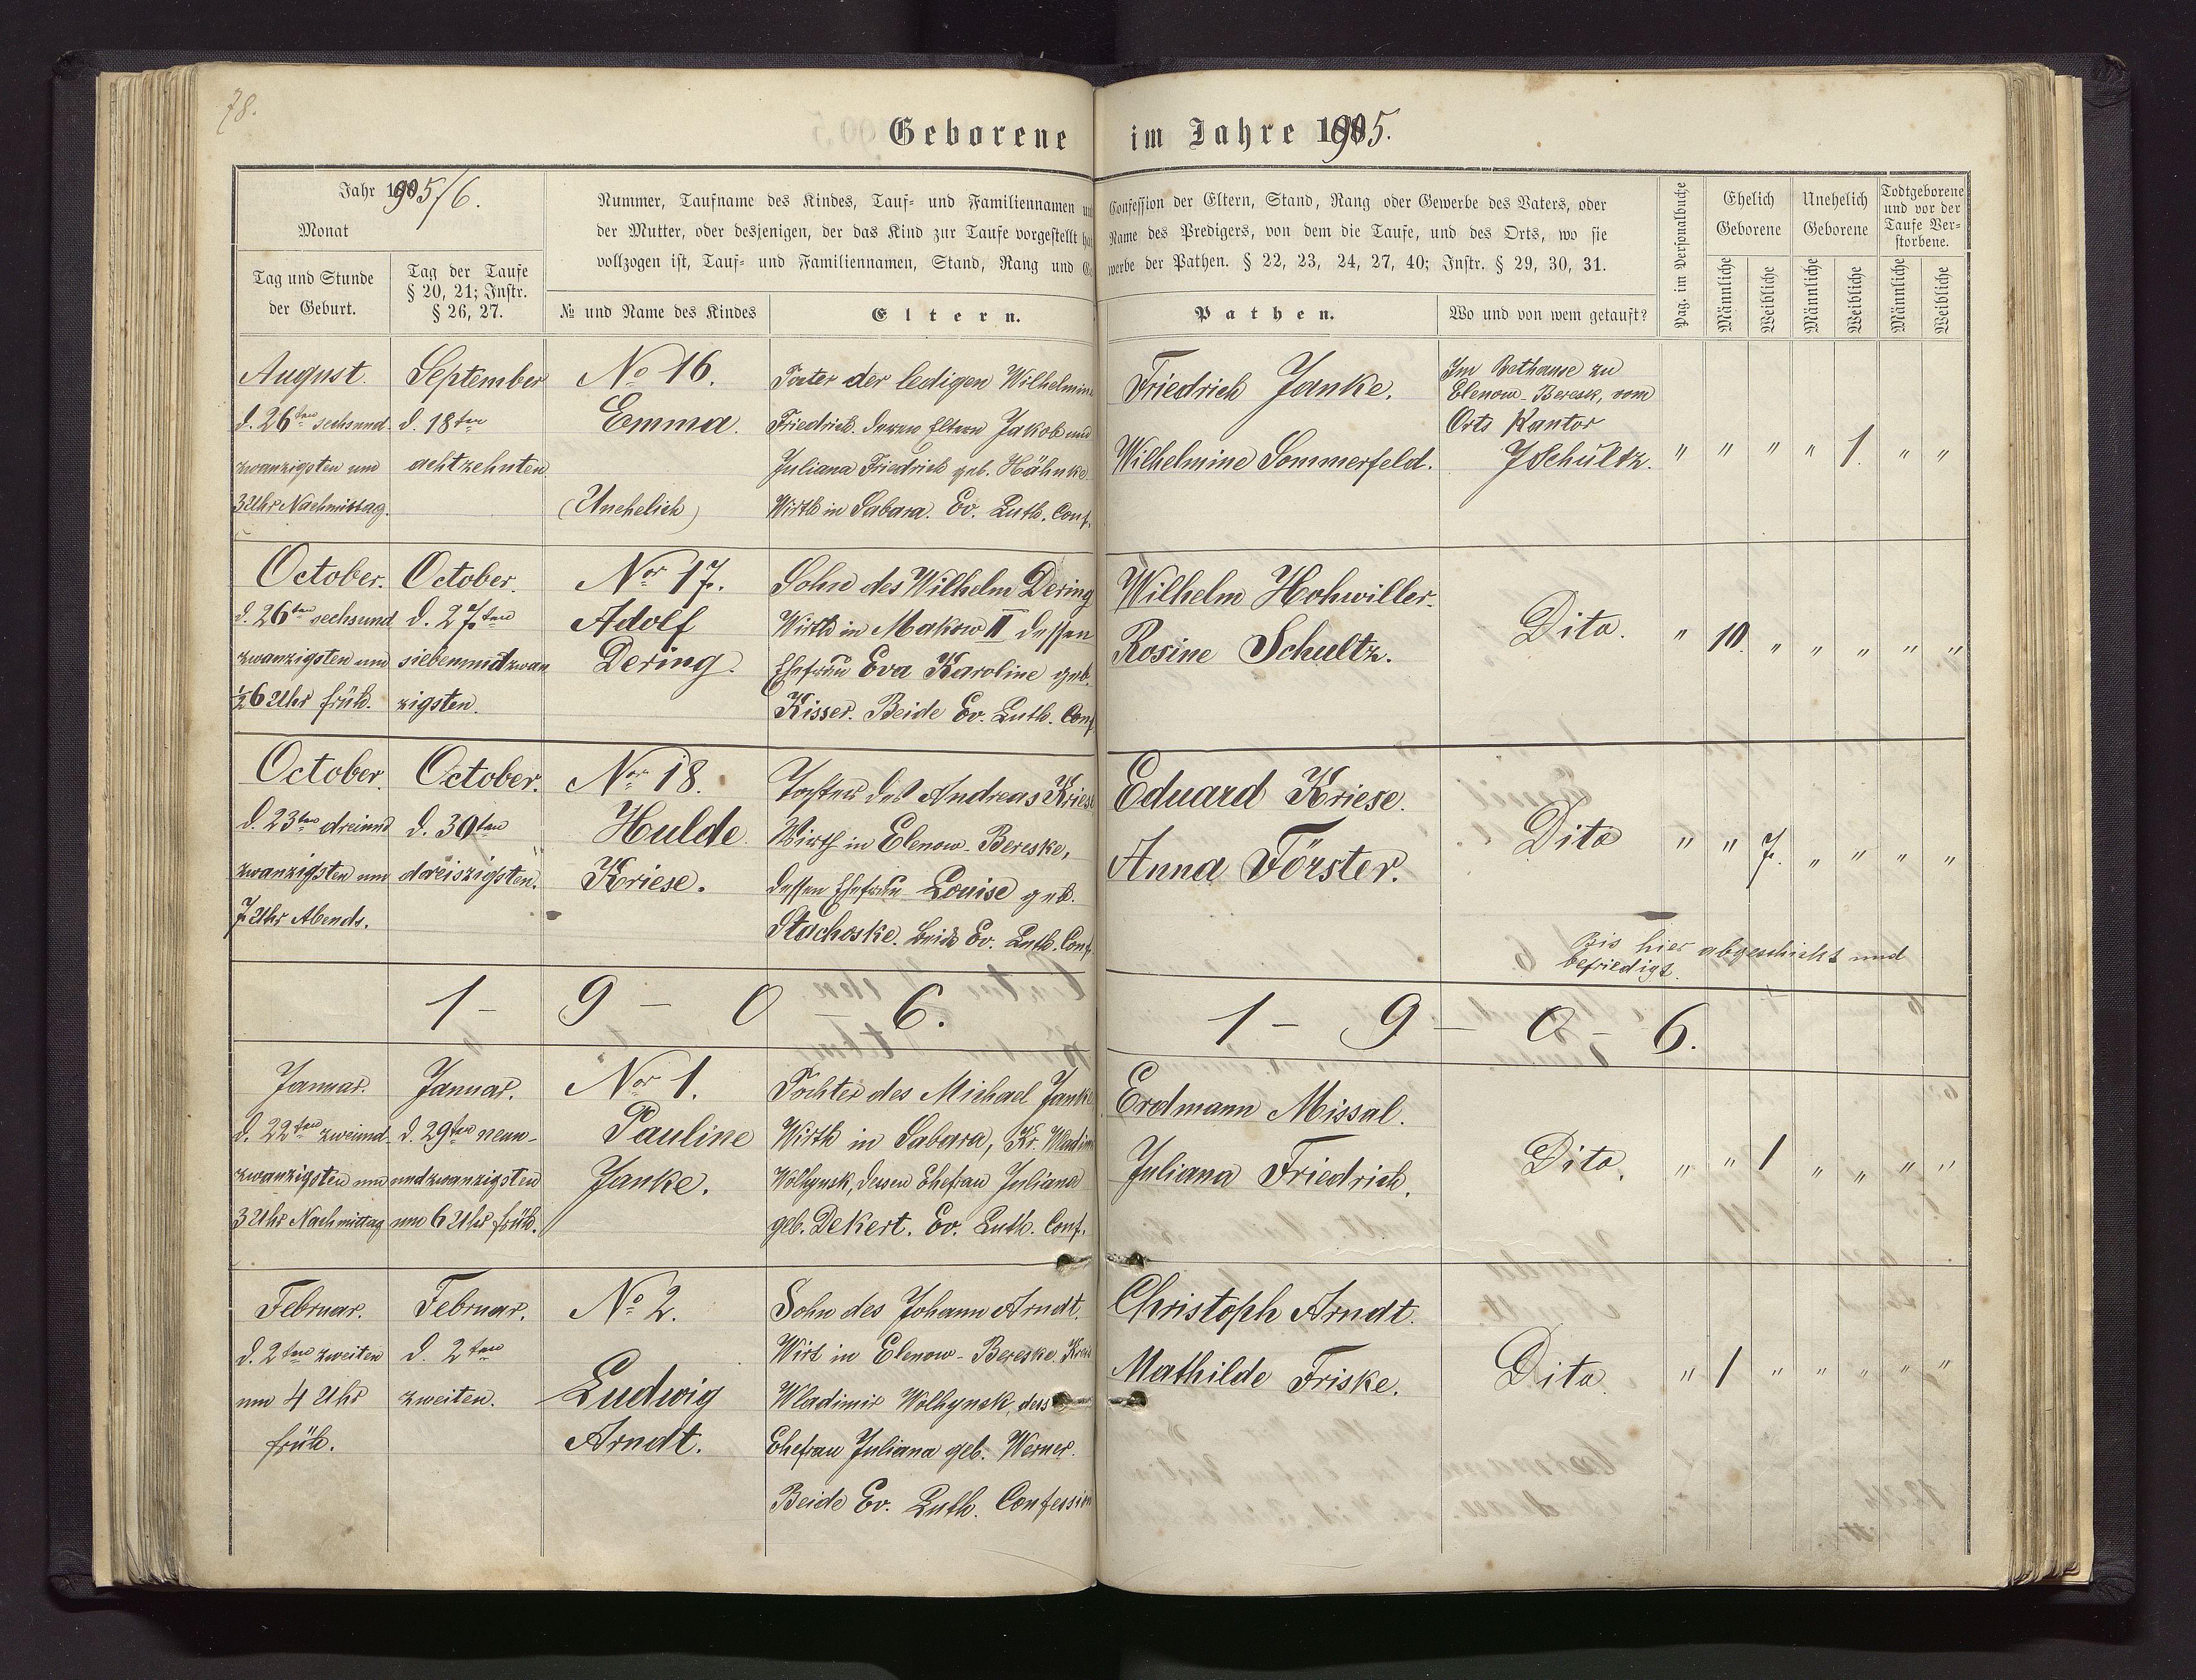 78.
Geborene im Jahre 1905.
Jahr 1905/6.
Monat
Tag und Stunde
der Geburt.
Tag der Taufe
§ 20, 21; Instr.
§ 26, 27.
Nummer, Taufname des Kindes, Tauf= und Familiennamen
der Mutter, oder desjenigen, der das Kind zur Taufe vorgestellt
vollzogen ist, Tauf= und Familiennamen, Stand, Rang und
№ und Name des Kindes
Eltern.
Confession der Eltern, Stand, Rang oder Gewerbe des Vaters, oder
Name des Predigers, von dem die Taufe, und des Orts, wo sie
werbe der Pathen. § 22, 23, 24, 27, 40; Instr. § 29, 30, 31.
Pathen.
Wo und von wem getauft?
Pag. im Personalbuche
Ehelich
Geborene
Männliche
Weibliche
Unehelich
Geborene
Männliche
Weibliche
Todtgeborene
und vor der
Taufe Ver=
storbene.
Männliche
Weibliche
August.
d. 26ten sechsund
zwanzigsten um
3 Uhr Nachmittag.
September
d. 18ten
achtzehnten
No 16.
Emma.
(Unehelich)
der ledigen Wilhelmine
Friedrich. deren Eltern Jakob und
Juliana Friedrich geb. Hähnke
Wirth in Sabara. Ev. Luth. Conf.
Friedrich Janke.
Wilhelmine Sommerfeld.
Im Bethause zu
Elenow-Beresk, vom
Orts Kantor
J Schultz.
" " " " 1. " "
October.
d. 26ten sechsund
zwanzigsten um
½6 Uhr früh.
October.
d. 27ten
siebenundzwan
zigsten.
Nor 17.
Adolf
Dering.
Sohn des Wilhelm Dering
Wirth in Makow II dessen
Ehefrau Eva Karoline geb.
Kisser. Beide Ev. Luth. Conf
Wilhelm Hohwiller.
Rosine Schultz.
Dito.
" 10. " " " " "
October.
d. 23ten dreiund
zwanzigsten um
7 Uhr Abends.
October.
d. 30ten
dreiszigsten.
Nor 18.
Hulde
Kriese.
Tochter des Andreas Kriese
Wirth in Elenow-Bereske,
dessen Ehefrau Louise geb.
Stachoske. beide Ev. Luth. Conf.
Eduard Kriese.
Anna Förster.
Dito
" " 7. " " " "
Bis hier abgeschickt und
befriedigt.
1 - 9 - 0 - 6.
1 - 9 - 0 - 6.
Januar.
d. 22ten zweiund
zwanzigsten um
3 Uhr Nachmittag
Januar.
d. 29ten neun-
undzwanzigsten
um 6 Uhr früh.
Nor 1.
Pauline
Janke.
Tochter des Michael Janke
Wirth in Sabara, Kr. Wladim
Wolhynsk, dessen Ehefrau Juliana
geb. Dekert. Ev. Luth. Conf.
Erdmann Missal.
Juliana Friedrich.
Dito.
" " 1 " " " "
Februar.
d. 2ten zweiten
um 4 Uhr
früh.
Februar.
d. 2ten
zweiten.
No 2.
Ludwig
Arndt.
Sohn des Johann Arndt.
Wirt in Elenow-Bereske. Kreis
Wladimir Wolhynsk, dess
Ehefrau Juliana geb. Werner.
Beide Ev. Luth. Confession
Christoph Arndt.
Mathilde Friske.
Dito.
" 1 " " " " "